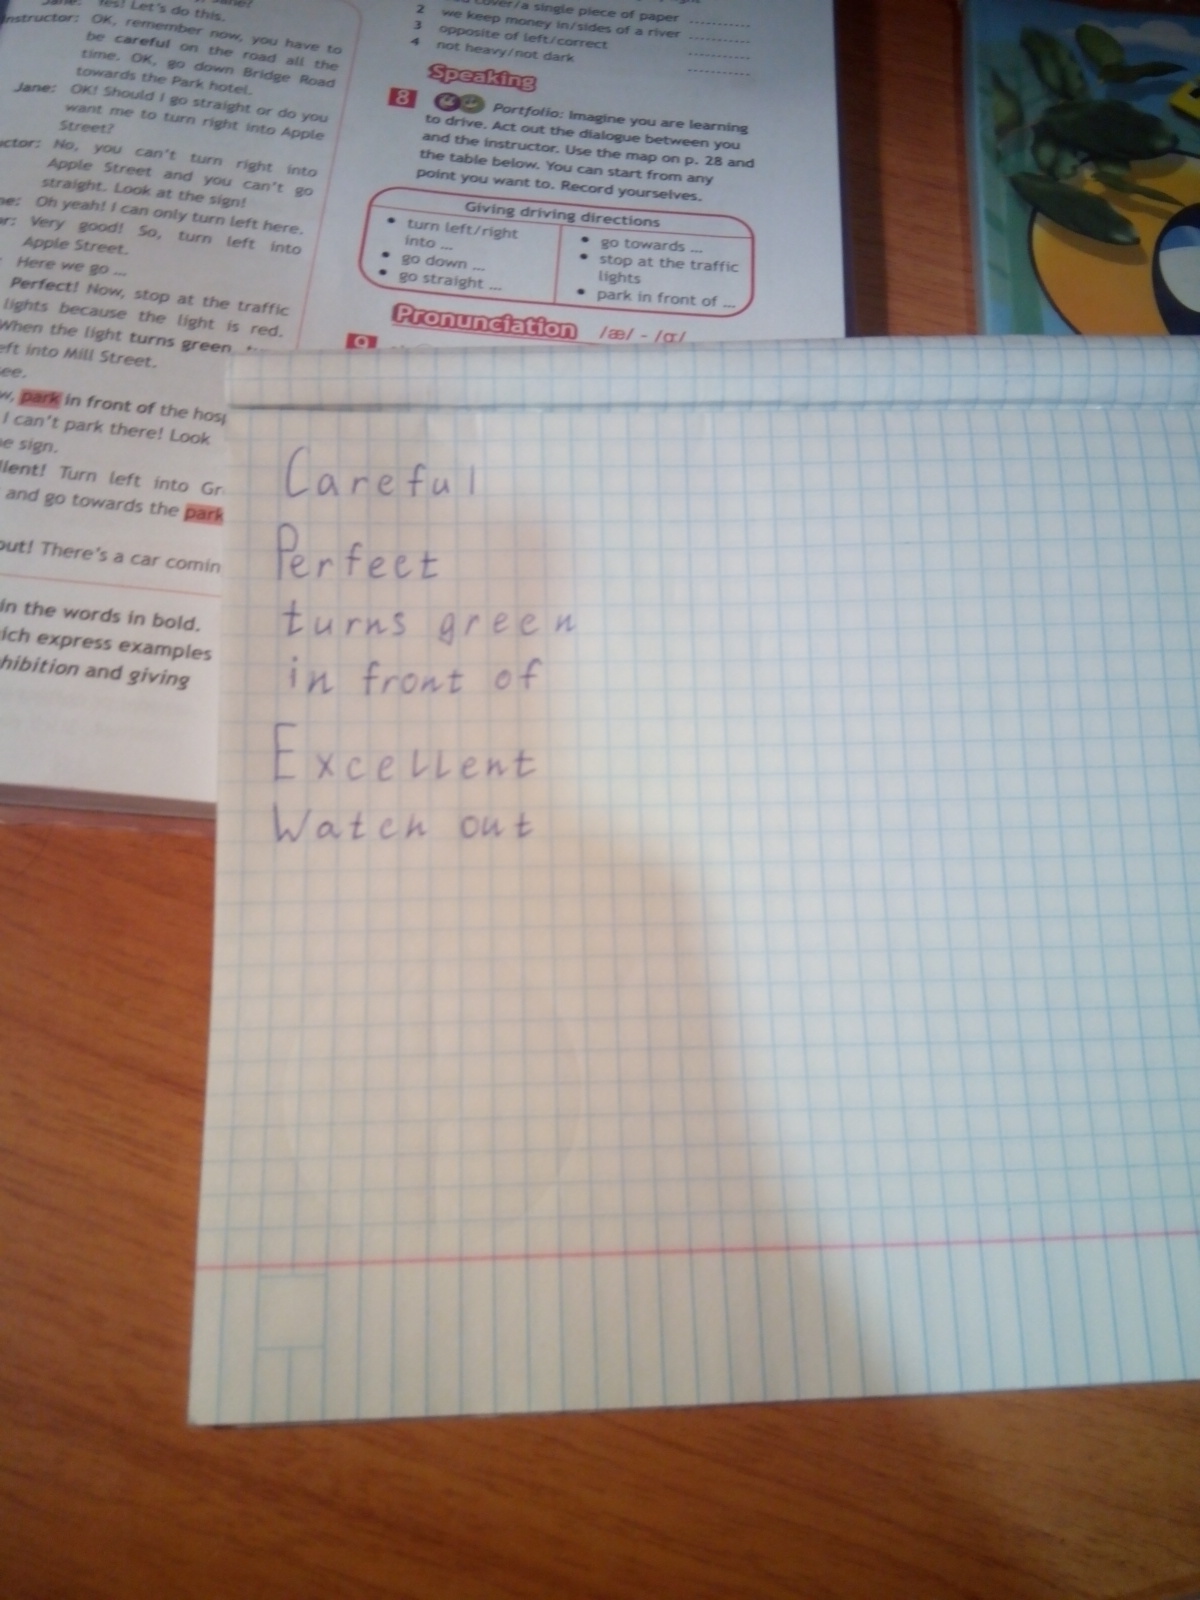 Jane: Yes! Let's do this.
nstructor: OK, remember now, you have to
be careful on the road all the
time. OK, go down Bridge Road
towards the Park hotel.
Jane: OK! Should I go straight or do you
want me to turn right into Apple
Street?
ctor: No, you can't turn right into
Apple Street and you can't go
straight. Look at the sign!
ne: Oh yeah! I can only turn left here.
or: Very good! So, turn left into
Apple Street.
: Here we go ...
Perfect! Now, stop at the traffic
lights because the light is red.
When the light turns green,
eft into Mill Street.
ee.
w, park in front of the hosp
I can't park there! Look
e sign.
llent! Turn left into Gr
and go towards the park
out! There's a car comin
in the words in bold.
ich express examples
hibition and giving
cover/a single piece of paper ............
2 we keep money in/sides of a river ............
3 opposite of left/correct ............
4 not heavy/not dark ............
Speaking
8 Portfolio: Imagine you are learning
to drive. Act out the dialogue between you
and the instructor. Use the map on p. 28 and
the table below. You can start from any
point you want to. Record yourselves.
Giving driving directions
• turn left/right
into ...
• go down ...
• go straight ...
• go towards ...
• stop at the traffic
lights
• park in front of ...
Pronunciation /æ/ - /ɑ:/
9
Careful
Perfect
turns green
in front of
Excellent
Watch out